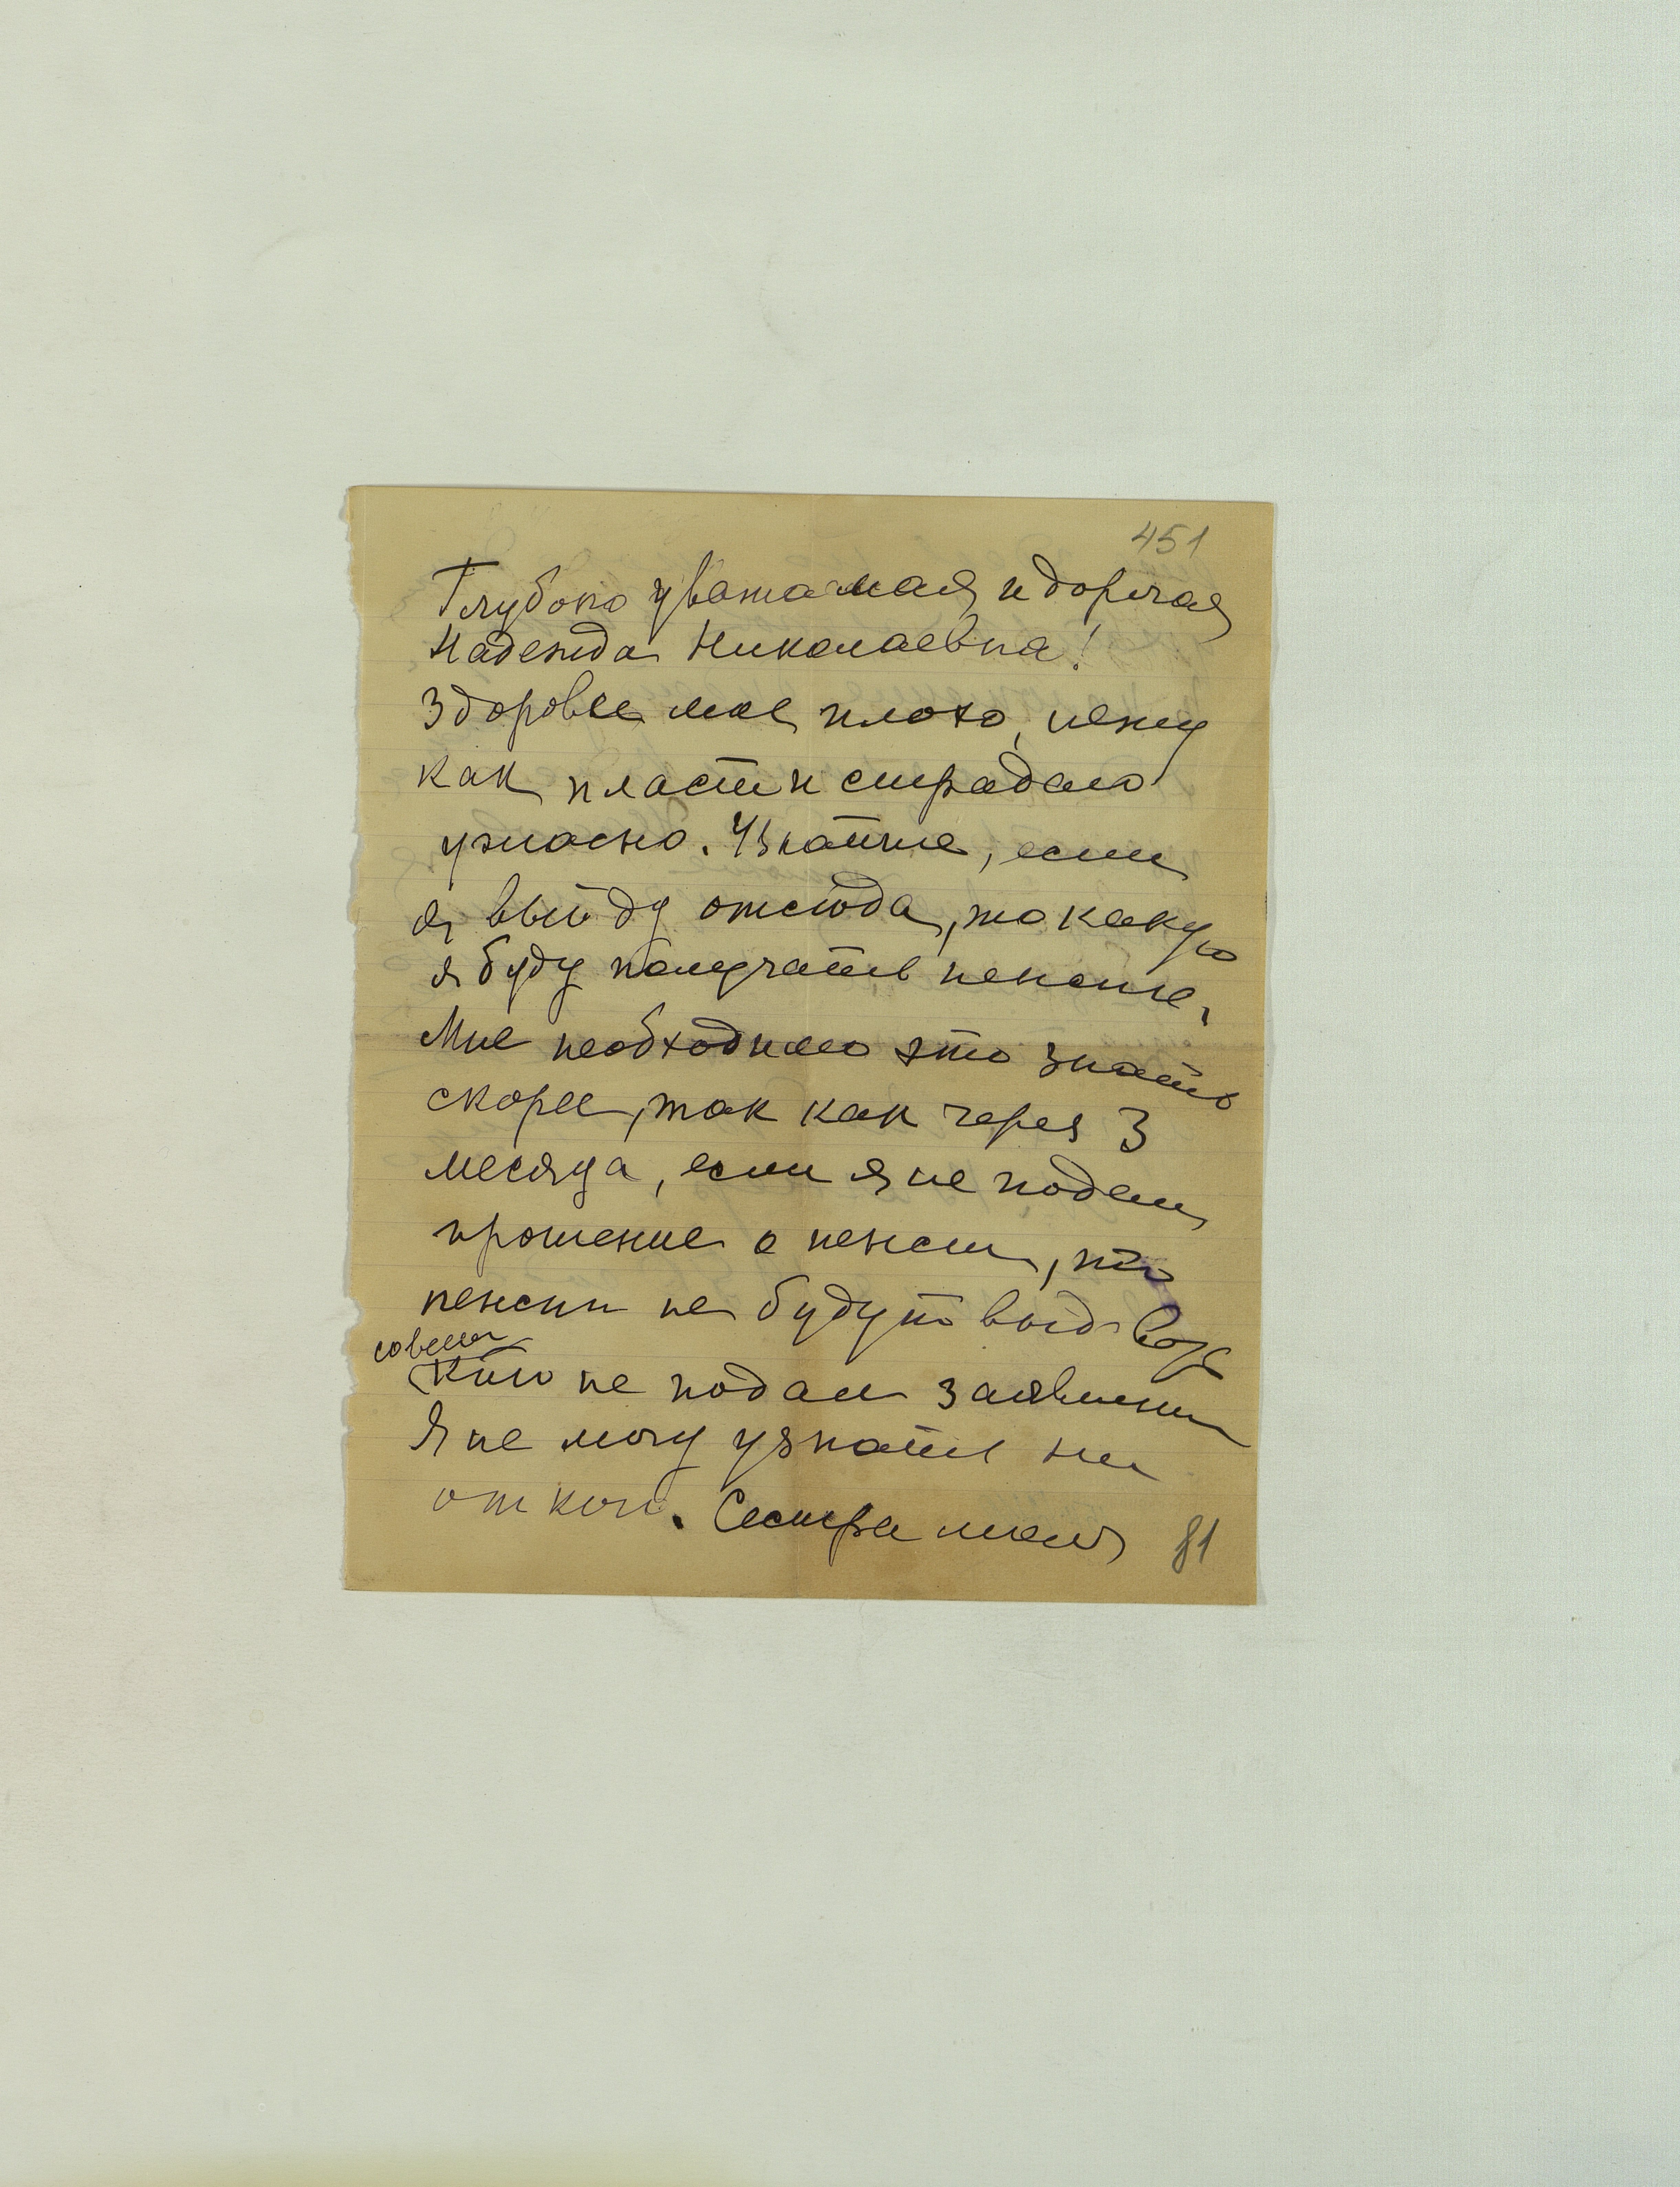 451
Глубоко уважамая и дорогая
Надежда Николаевна!
Здоровье мое плохо, лежу
как пласт и страдаю
ужасно. Узнайте, если
я выйду отсюда, то какую
я буду получать пенсию,
Мне необходимо это знать
скорее, так как через 3
месяца, если я не подам
прошение о пенсии, то
пенсии не будут выдавать
совсем
Кто не подал заявления
Я не могу узнать ни
от кого. Сестра моя
81